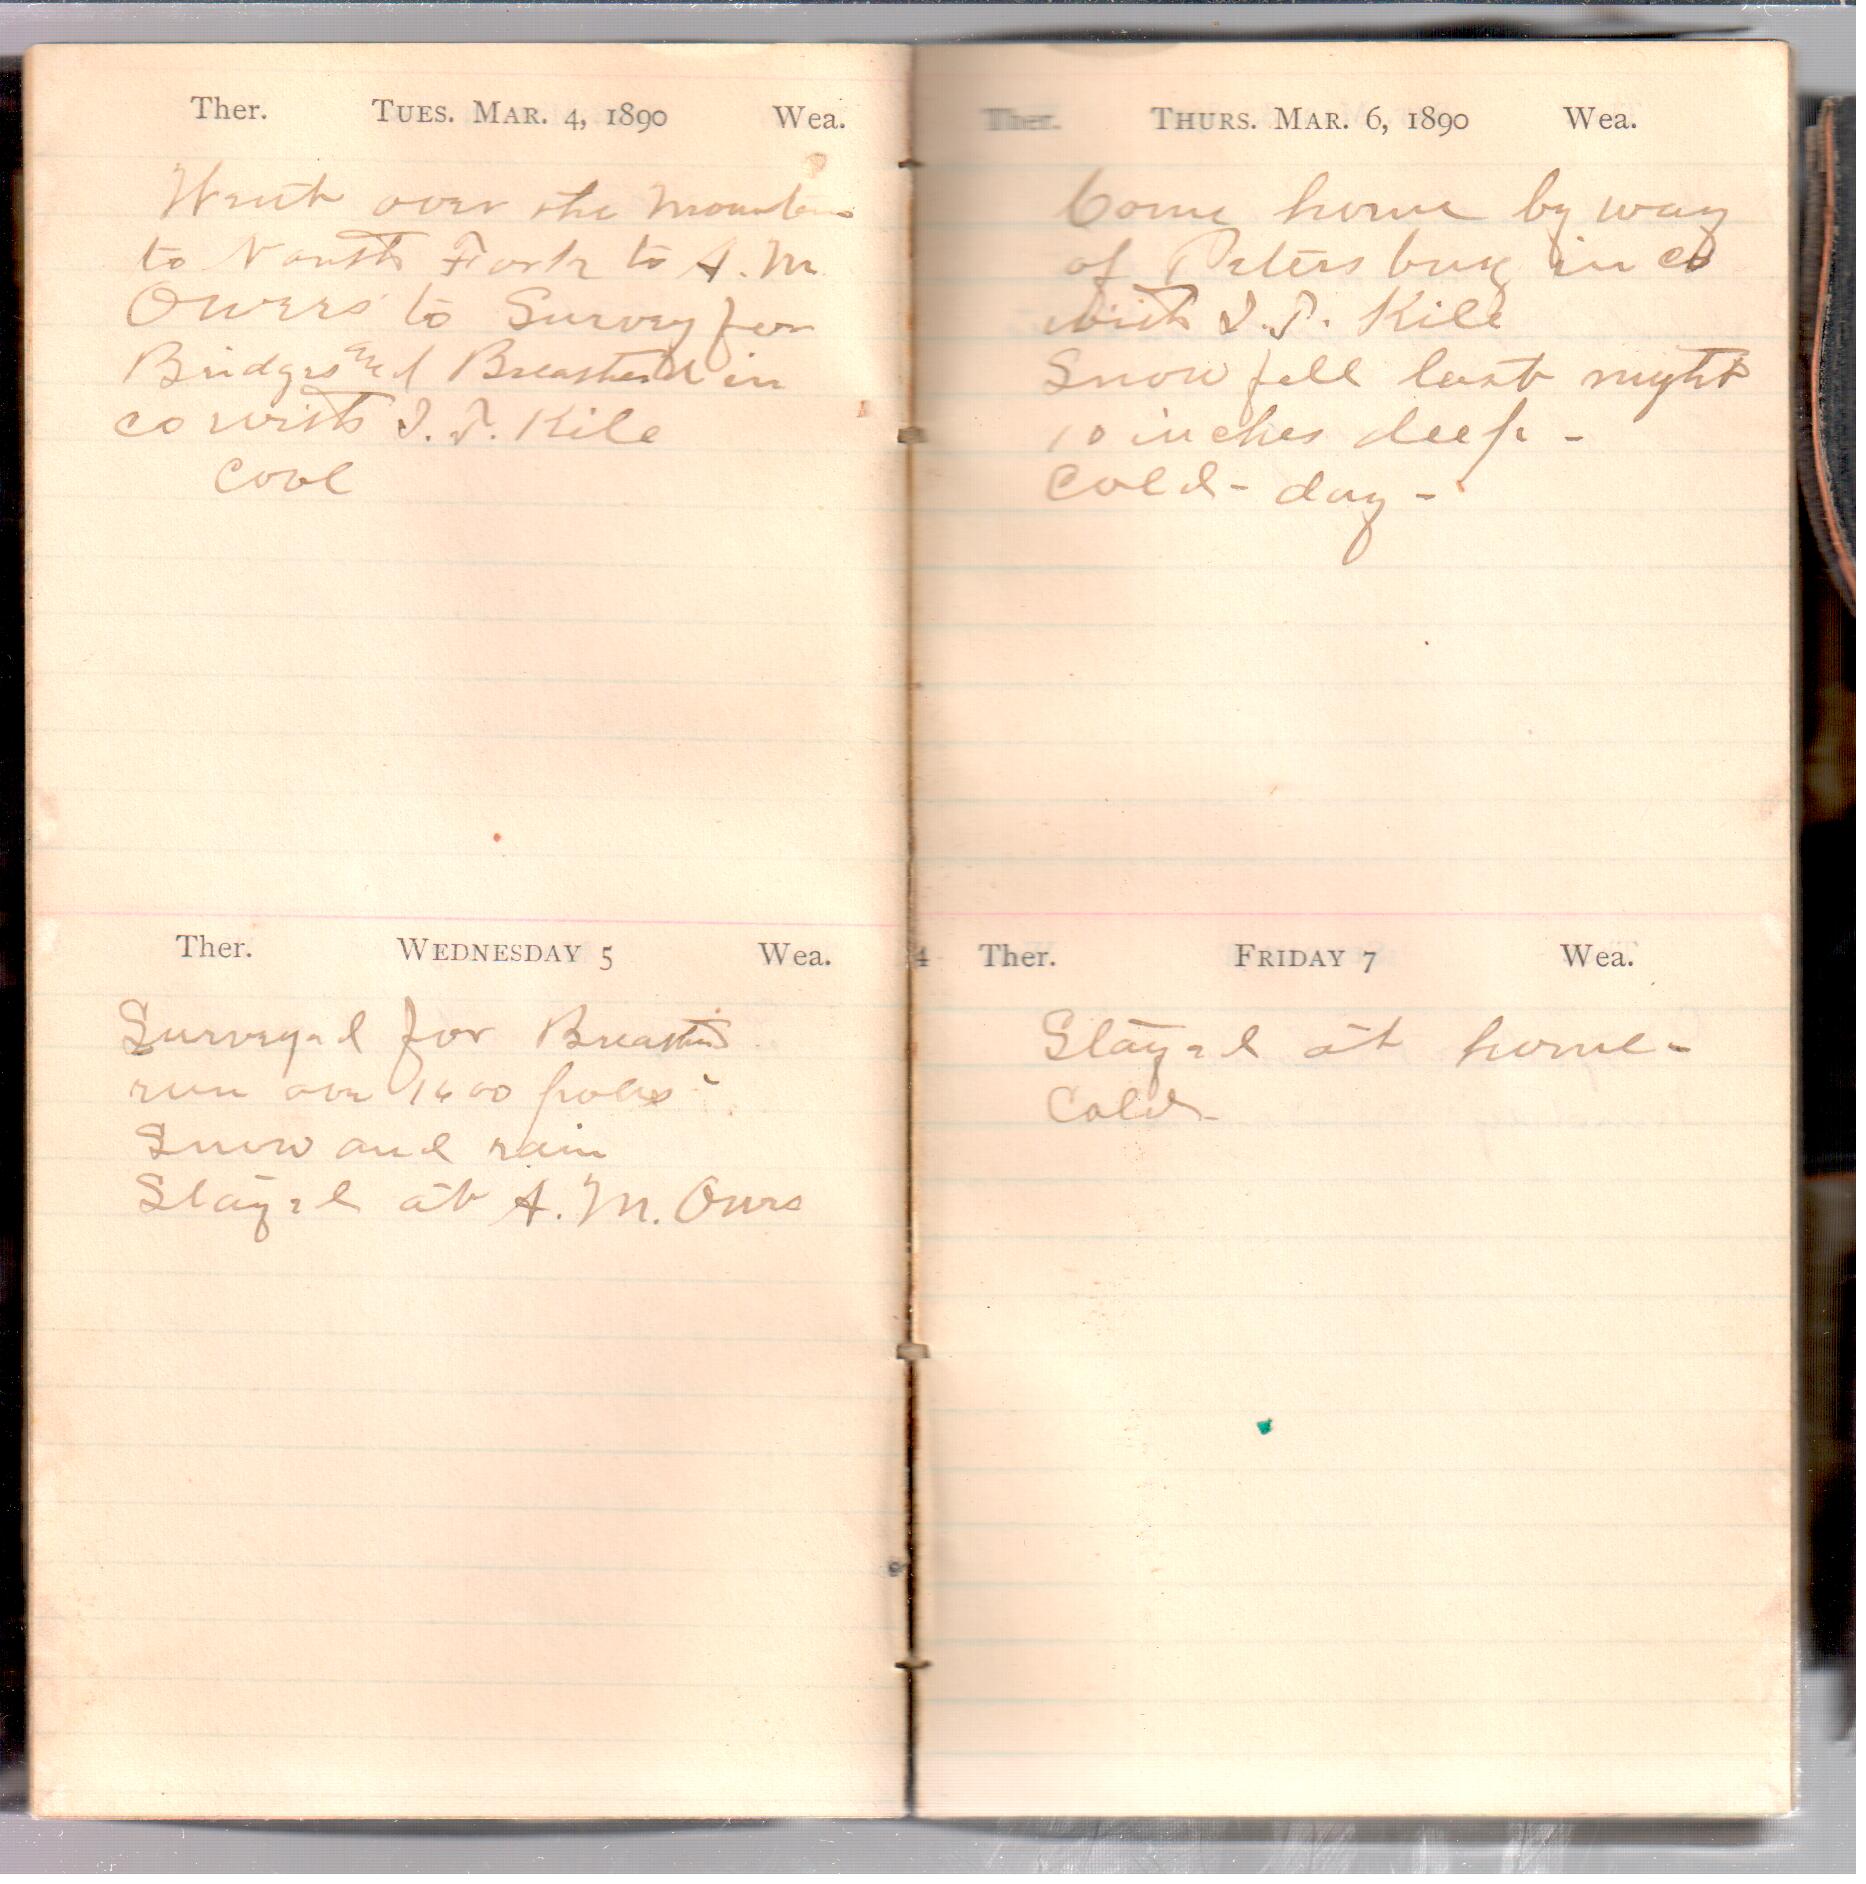 Ther. TUES. MAR. 4, 1890 Wea.
Went over the Mountain
to North Fork to A. M.
Owers to Survey for
Bridges and in
co with I. J. Kile
cool
Ther. WEDNESDAY 5 Wea.
Surveyed for
run over 1600 poles -
Snow and rain
Stayed at A. M. Ours
Ther. THURS. MAR. 6, 1890 Wea.
Come home by way
of Petersburg in co
with I. J. Kile
Snow fell last night
10 inches deep -
Cold - day -
4 Ther. FRIDAY 7 Wea.
Stayed at home -
Cold -